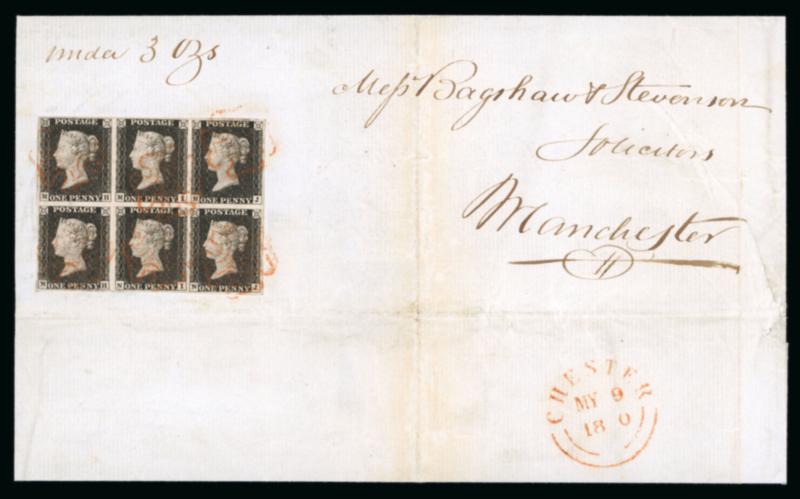 under 3 Ozs
Messrs Bagshaw & Stevenson
Solicitors
Manchester
POSTAGE POSTAGE POSTAGE
M ONE PENNY H M ONE PENNY I M ONE PENNY J
POSTAGE POSTAGE POSTAGE
N ONE PENNY H N ONE PENNY I N ONE PENNY J
CHESTER
MY 9
18 0